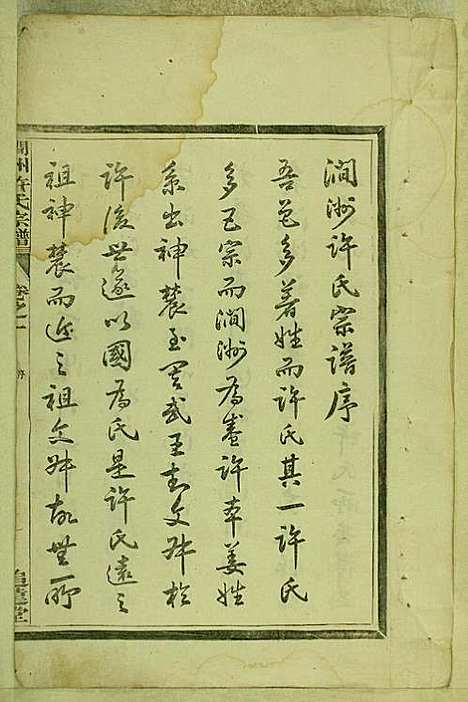 澗洲许氏宗谱序
吾邑多著姓而许氏其一许氏
多它宗而澗洲為盛许本姜姓
系出神農至周武王封文叔於
许後世遂以國為氏是许氏遠之
祖神農而近之祖文叔故無所
澗洲许氏宗譜
卷之一
序
追遠堂